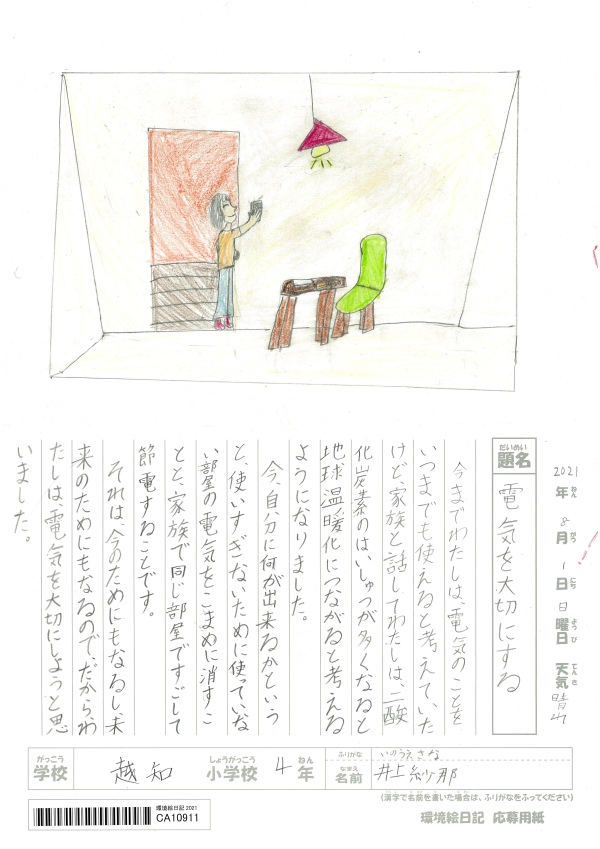 2021年ねん 8月がつ 1日にち 日曜日ようび 天気てんき 晴れ
題名だいめい 電気を大切にする
今までわたしは、電気のことを
いつまでも使えると考えていた
けど、家族と話してわたしは、二酸
化炭素のはいしゅつが多くなると
地球温暖化につながると考える
ようになりました。
今、自分に何が出来るかという
と、使いすぎないために使っていな
い部屋の電気をこまめに消すこ
とと、家族で同じ部屋ですごして
節電することです。
それは、今のためにもなるし、未
来のためにもなるので、だから、わ
たしは、電気を大切にしようと思
いました。
学校がっこう 越知 小学校しょうがっこう 4年ねん
ふりがな いのうえ さな
名前なまえ 井上 紗那
(漢字で名前を書いた場合は、ふりがなをふってください)
環境絵日記 2021
CA10911
環境絵日記 応募用紙